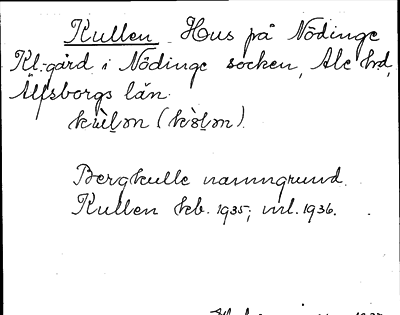 Kullen Hus på Nödinge
Kl.-gård i Nödinge socken, Ale hd,
Älfsborgs län.
Bergkulle namngrund.
Kullen kb. 1935; inl. 1936.